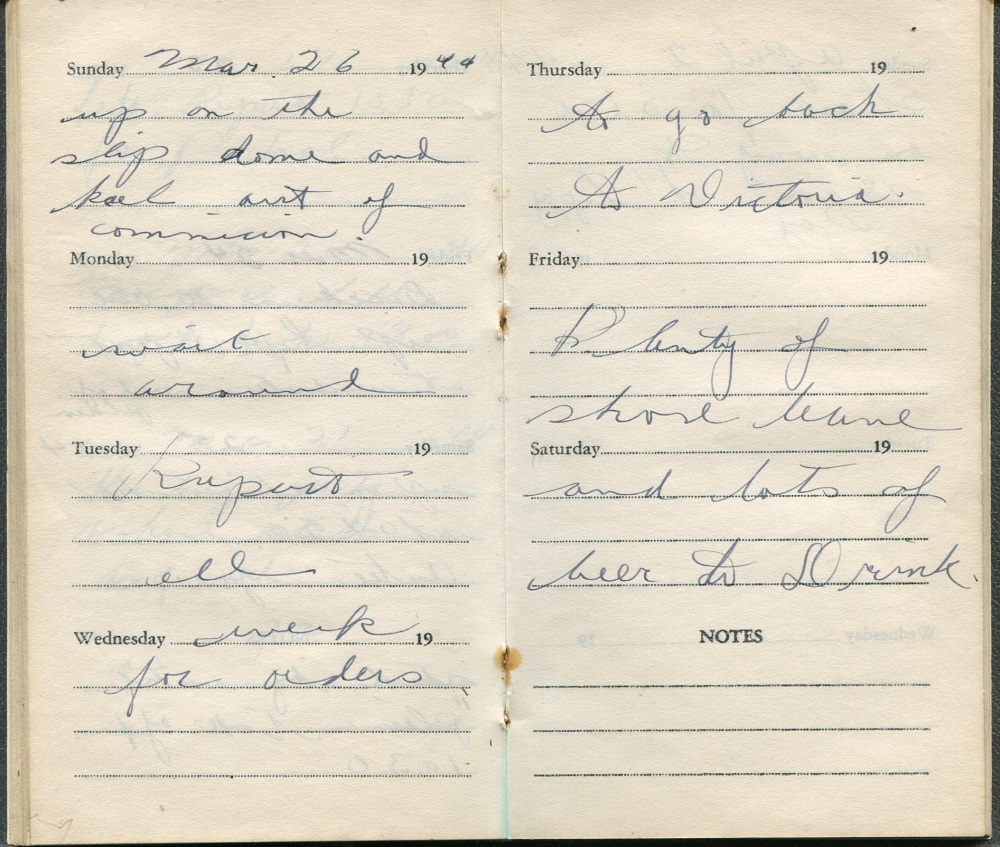 Sunday Mar. 26 1944
up on the
slip dome and
keel out of
commicion.
Monday 19
wait
around
Tuesday 19
Rupert
all
Wednesday week 19
for orders
Thursday 19
to go back
to Victoria.
Friday 19
Plenty of
shore leave
Saturday 19
and lots of
beer to Drink.
NOTES